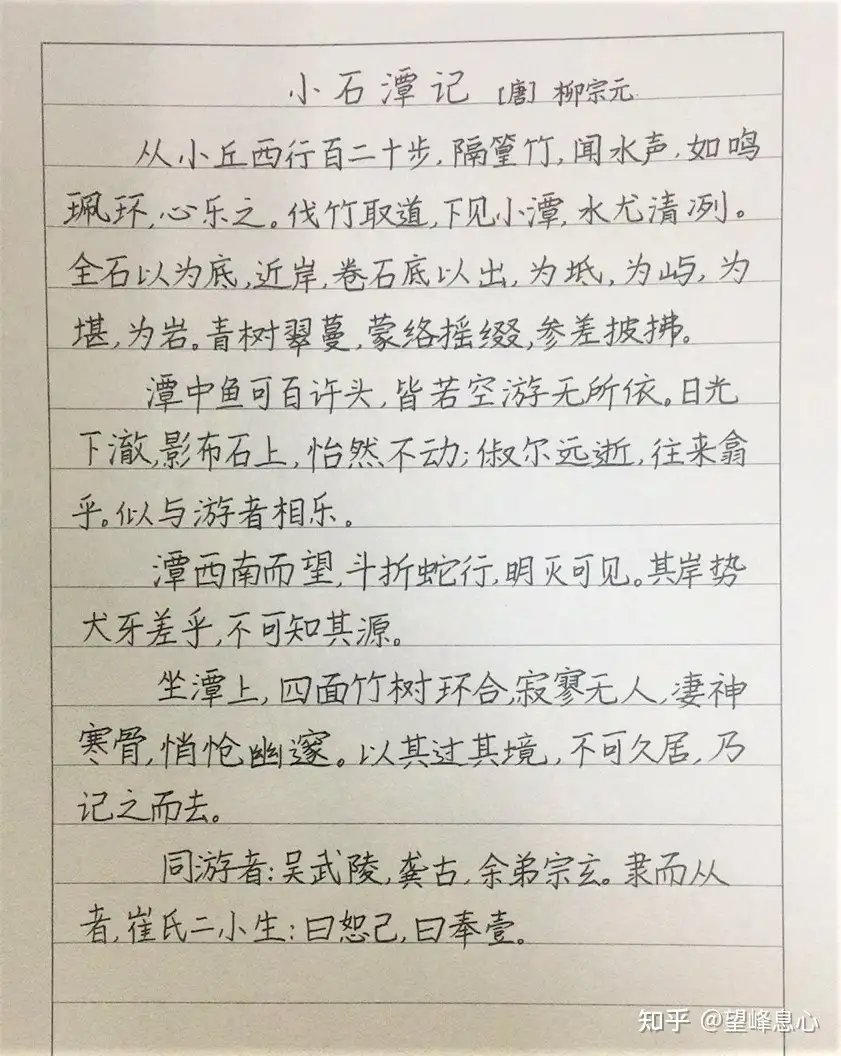 小石潭记 [唐] 柳宗元
从小丘西行百二十步,隔篁竹,闻水声,如鸣
珮环,心乐之。伐竹取道,下见小潭,水尤清冽。
全石以为底,近岸,卷石底以出,为坻,为屿,为
堪,为岩。青树翠蔓,蒙络摇缀,参差披拂。
潭中鱼可百许头,皆若空游无所依。日光
下澈,影布石上,怡然不动;俶尔远逝,往来翕
乎。似与游者相乐。
潭西南而望,斗折蛇行,明灭可见。其岸势
犬牙差乎,不可知其源。
坐潭上,四面竹树环合,寂寥无人,凄神
寒骨,悄怆幽邃。以其过其境,不可久居,乃
记之而去。
同游者:吴武陵,龚古,余弟宗玄。隶而从
者,崔氏二小生:曰恕己,曰奉壹。
知乎 @望峰息心